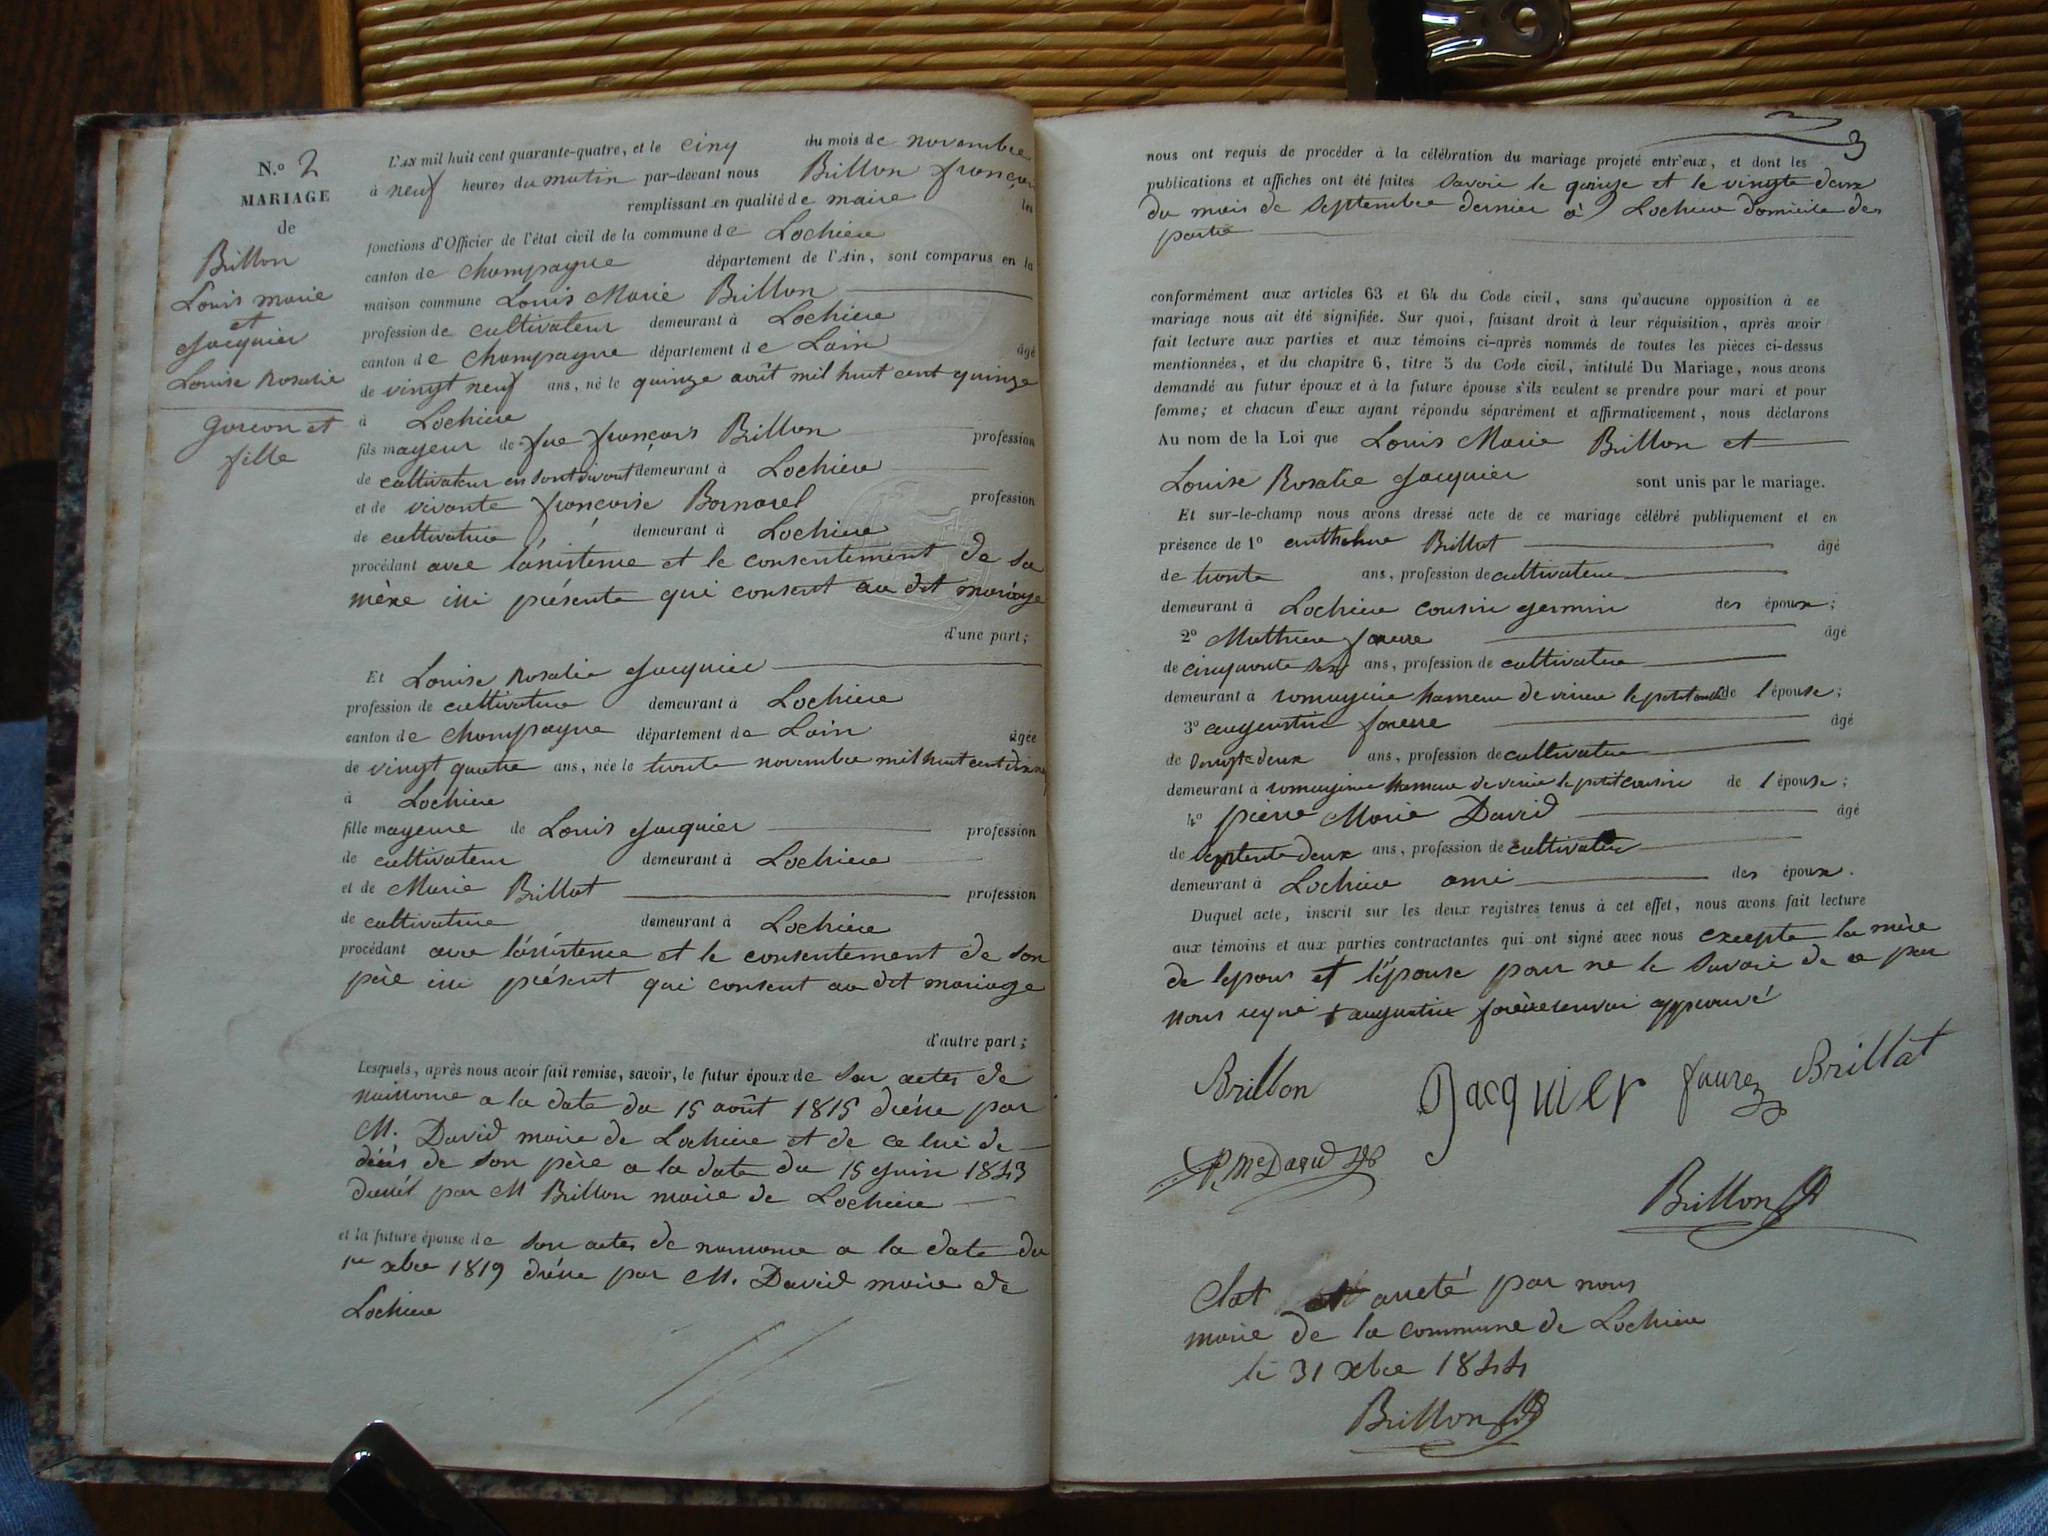 N.o 2
MARIAGE
de
Brillon
Louis marie
et
Jacquier
Louise Rosalie
garcon et
fille
L'AN mil huit cent quarante-quatre, et le cinq du mois de novembre
à neuf heures du matin par-devant nous Brillon françois
remplissant en qualité de maire les
fonctions d'Officier de l'état civil de la commune de Lochieu
canton de Champagne département de l'Ain, sont comparus en la
maison commune Louis Marie Brillon
profession de cultivateur demeurant à Lochieu
canton de Champagne département de Lain âgé
de vingt neuf ans, né le quinze août mil huit cent quinze
à Lochieu
fils mageur de feu françois Brillon profession
de cultivateur en sont vivant demeurant à Lochieu
et de vivante françoise Bornarel profession
de cultivatrice demeurant à Lochieu
procédant avec l'asistence et le consentement de sa
mère ici présente qui consent au dit mariage
d'une part;
Et Louise Rosalie Jacquier
profession de cultivatrice demeurant à Lochieu
canton de Champagne département de Lain âgée
de vingt quatre ans, née le trente novembre mil huit cent
à Lochieu
fille mageure de Louis Jacquier profession
de cultivateur demeurant à Lochieu
et de Marie Brillat profession
de cultivatrice demeurant à Lochieu
procédant avec l'asistence et le consentement de son
père ici présent qui consent au dit mariage
d'autre part;
Lesquels, après nous avoir fait remise, savoir, le futur époux de son actes de
naissance a la date du 15 août 1815 par
M. David maire de Lochieu et de ce lui de
décès de son père a la date du 15 juin 1843
par M Brillon maire de Lochieu
et la future épouse de son actes de naissance a la date du
1er xbre 1819 par M. David maire de
Lochieu
3
nous ont requis de procéder à la célébration du mariage projeté entr'eux, et dont les
publications et affiches ont été faites savoir le quinze et le vingte deux
du mois de septembre dernier à Lochieu domicile des
partie
conformément aux articles 63 et 64 du Code civil, sans qu'aucune opposition à ce
mariage nous ait été signifiée. Sur quoi, faisant droit à leur réquisition, après avoir
fait lecture aux parties et aux témoins ci-après nommés de toutes les pièces ci-dessus
mentionnées, et du chapitre 6, titre 5 du Code civil, intitulé Du Mariage, nous avons
demandé au futur époux et à la future épouse s'ils veulent se prendre pour mari et pour
femme; et chacun d'eux ayant répondu séparément et affirmativement, nous déclarons
Au nom de la Loi que Louis Marie Brillon et
Louise Rosalie Jacquier sont unis par le mariage.
Et sur-le-champ nous avons dressé acte de ce mariage célébré publiquement et en
présence de 1o anthelme Brillat âgé
de trente ans, profession de cultivateur
demeurant à Lochieu cousin germin des époux;
2o Mathieu âgé
de cinquante ans, profession de cultivateur
demeurant à romagnieu hameau de virieu le petit de l'épouse;
3o augustin âgé
de vingte deux ans, profession de cultivateur
demeurant à romagnieu hameau de virieu le petit cousin de l'épouse;
4o pierre Marie David âgé
de septente deux ans, profession de cultivateur
demeurant à Lochieu ami des époux.
Duquel acte, inscrit sur les deux registres tenus à cet effet, nous avons fait lecture
aux témoins et aux parties contractantes qui ont signé avec nous excepte la mère
de lepoux et l'épouse pour ne le savoir de ce par
nous requi + augustin renvoi approuvé
Brillon Jacquier Brillat
P. Me David
Brillon
Clot et arreté par nous
maire de la commune de Lochieu
le 31 xbre 1844
Brillon